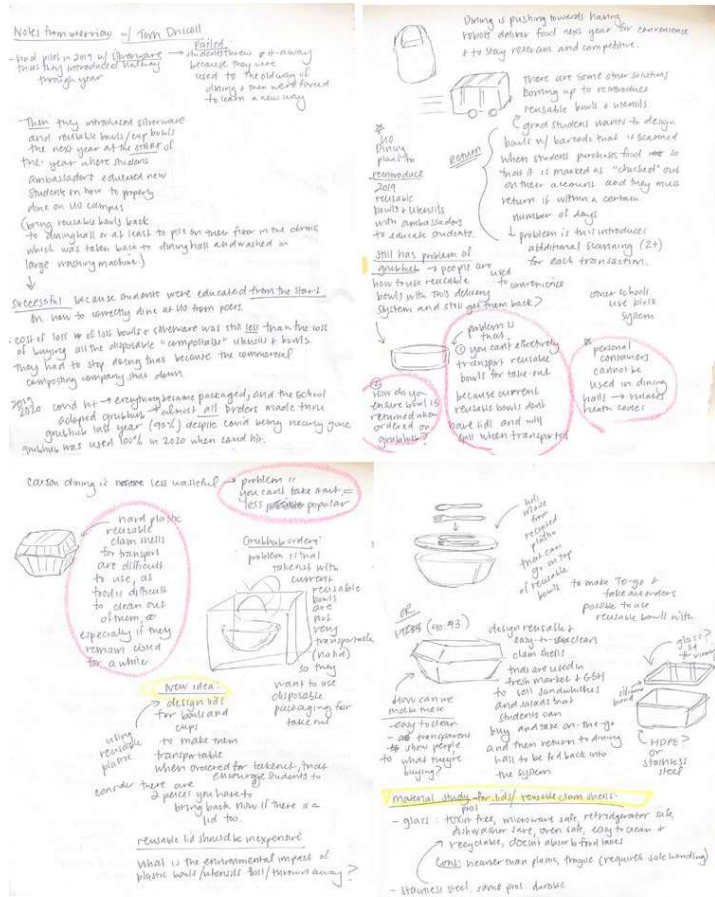 Notes from interview w/ Tom Driscoll
- had pilot in 2019 w/ silverware
that they introduced halfway
through year
Failed
students threw it away
because they were
used to the old way of
dining & then were forced
to learn a new way
- Then they introduced silverware
and reusable bowls/cup bowls
the next year at the START of
the year where students
ambassadors educated new
students on how to properly
dine on UO campus
(bring reusable bowls back
to dining hall or at least to pile on their floor in the dorms
which was taken back to dining hall and washed in
large washing machine.)
successful because students were educated from the start
on how to correctly dine at UO from peers.
cost of loss of bowls & silverware was still less than the cost
of buying all the disposable "compostable" utensils & bowls.
They had to stop doing that because the commercial
composting company shut down
2019
2020 covid hit → everything became packaged, and the school
adopted grubhub → almost all orders made thru
grubhub last year (90%) despite covid being nearly gone,
grubhub was used 100% in 2020 when covid hit.
Dining is pushing towards having
robots deliver food next year for convenience
& to stay relevant and competitive.
there are some other solutions
coming up to reintroduce
reusable bowls & utensils.
grad student wants to design
bowls w/ barcode that is scanned
when student purchases food so
that it is marked as "checked" out
on their accounts and they must
return it within a certain
number of days
problem is this introduces
additional scanning (2+)
for each transaction.
Return
UO
Dining
plans to
reintroduce
2019
reusable
bowls & utensils
with ambassadors
to educate students.
still has problem of
grubhub → people are used
to convenience
how to use reusable
bowls with this delivery
system and still get them back?
other schools
use
system
problem is
that:
① you can't effectively
transport reusable
bowls for take-out
because current
reusable bowls don't
have lids and will
spill when transported
② How do you
ensure bowl is
returned when
ordered on
grubhub?
personal
containers
cannot be
used in dining
halls → violates
health code!
carson dining is less wasteful → problem is
you can't take it out =
less popular
hard plastic
reusable
clam shells
for transport
are difficult
to use, as
food is difficult
to clean out
of them,
especially if they
remain closed
for a while
Grubhub orders:
problem is that
takeout with
current
reusable
bowls
are
not
very
transportable
(no lid)
so they
want to use
disposable
packaging for
takeout
New idea:
design lids
for bowls and
cups
to make them
transportable
when ordered for takeout, that
encourage students to
using
reusable
plastic
consider there are
2 pieces you have to
bring back now if there is a
lid too.
reusable lid should be inexpensive
what is the environmental impact of
plastic bowls/utensils lost/thrown away?
lids
made
from
recycled
plastic
that can
go on top
of reusable
bowls
to make to-go &
take out orders
possible to use
reusable bowls with
OR
design reusable &
easy-to-clean
clam shells
that are used in
fresh market &
to sell sandwiches
and salads that
students can
buy and take on-the-go
and then return to dining
halls to be fed back into
the system
How can we
make these
- easy to clean
- transparent
to show people
what they're
buying?
glass?
silicone
band
HDPE?
or
stainless
steel
material study for lids/reusable clam shells:
pros
- glass: toxin free, microwave safe, refridgerator safe,
dishwasher safe, oven safe, easy to clean &
recyclable, doesn't absorb food tastes
Cons: heavier than plastic, fragile (requires safe handling)
- stainless steel: same pros. durable